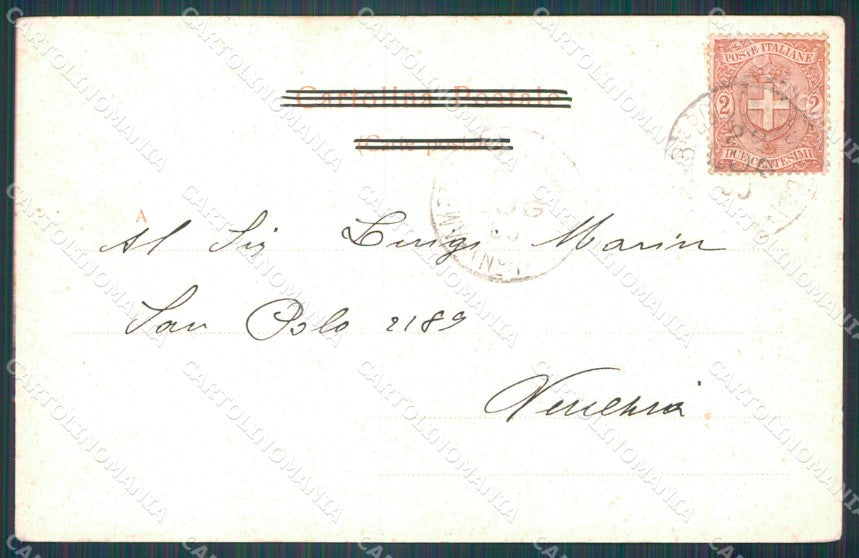 Cartolina Postale
(Carte postale)
POSTE ITALIANE
2 2
DUE CENTESIMI
A
Al Sig Luigi Marin
San Polo 2189
Venezia
CARTOLINOMANIA